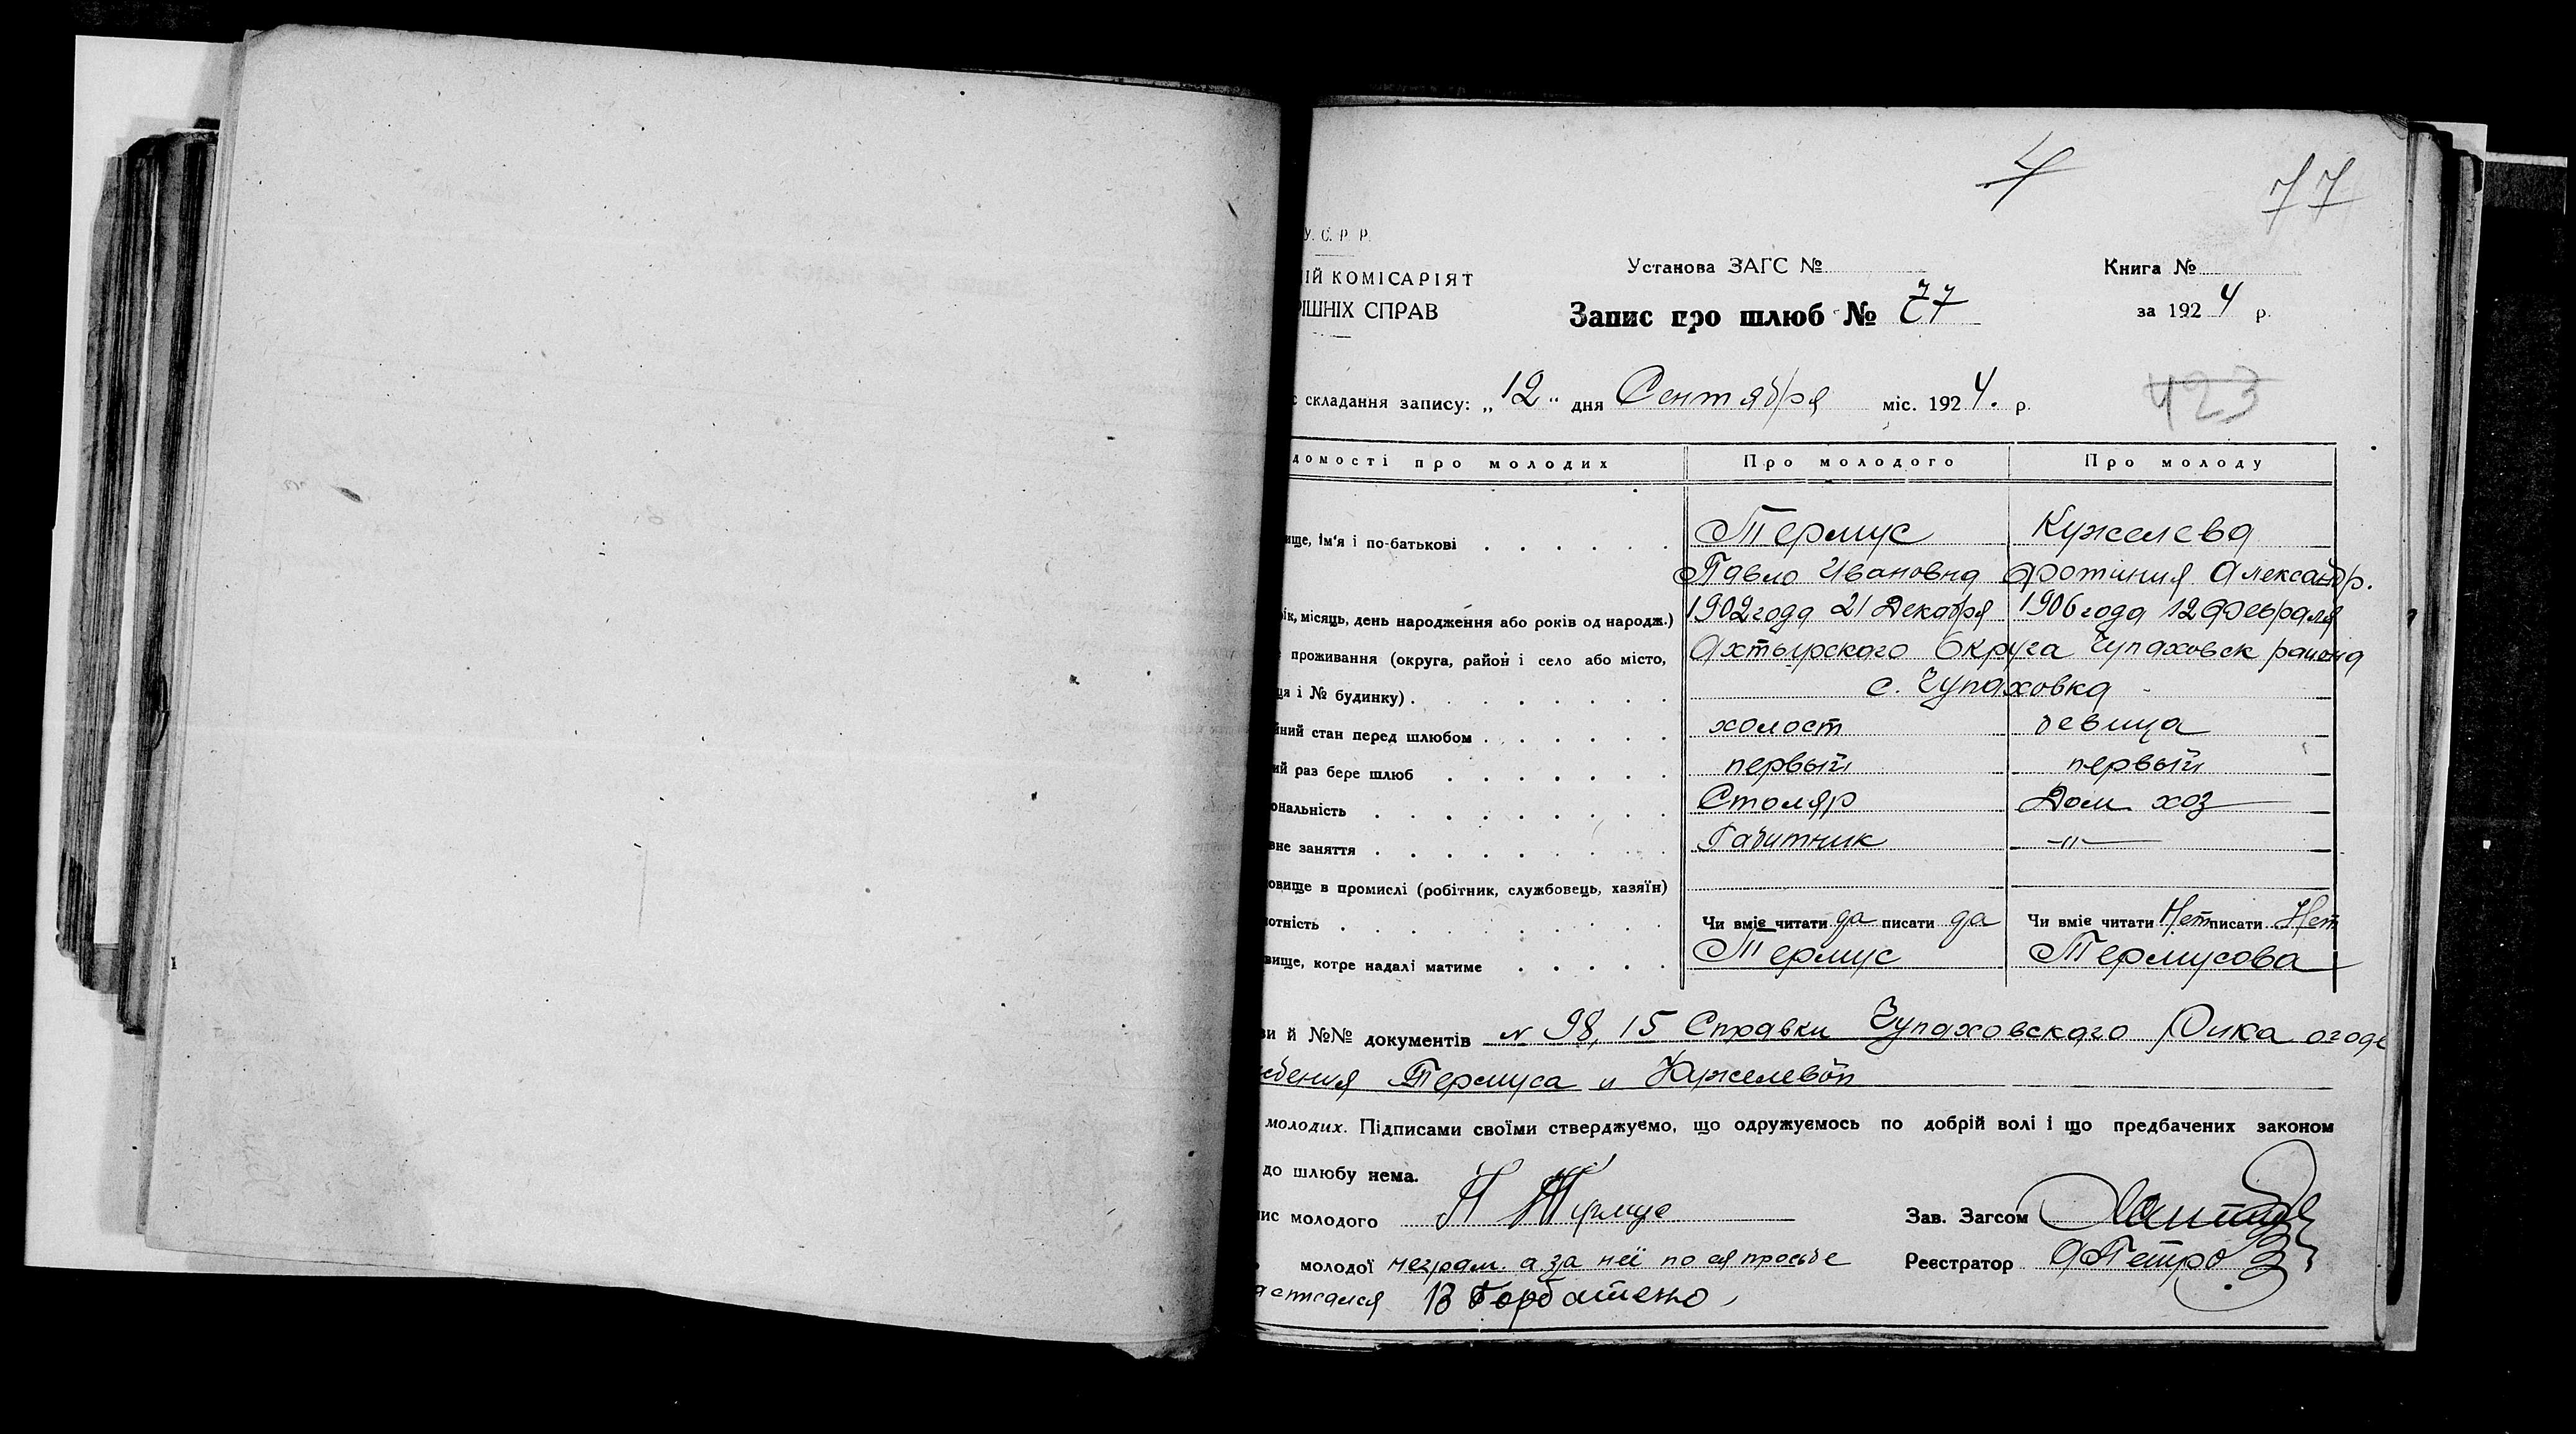 4
77
У. С. Р. Р.
ІЙ КОМІСАРІЯТ
ІШНІХ СПРАВ
Установа ЗАГС №
Книга №
Запис про шлюб № 77
за 1924 р.
складання запису: „12" дня Сентября міс. 1924. р.
423
домості про молодих Про молодого Про молоду
ище, ім'я і по-батькові Термус Кужелева
Павло Ивановиа Фотиния Александр.
ік, місяць, день народження або років од народж.) 1902 года 21 Декабря 1906 года 12 Февраля
проживання (округа, район і село або місто, Ахтырского Округа Чупаховск района
ця і № будинку) с. Чупаховка
йний стан перед шлюбом холост девица
ий раз бере шлюб первый первый
ональність Столяр Дом хоз
вне заняття Рабитник —"—
овище в промислі (робітник, службовець, хазяїн)
отність Чи вміє читати да писати да Чи вміє читати Нет писати Нет
вище, котре надалі матиме Термус Термусова
зи й №№ документів N 98, 15 Справки Чупаховского Рика о годе
дения Термуса и Кужелевой
молодих. Підписами своїми стверджуємо, що одружуємось по добрій волі і що предбачених законом
до шлюбу нема.
ис молодого П Термус Зав. Загсом
молодої неграм. а за неї по ея просьбе Реєстратор Петро
В Горбатенко